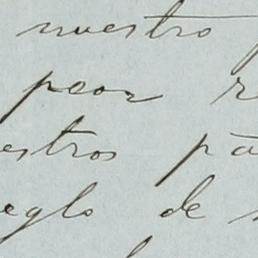 nuestro
peor
estros pa
eglo de